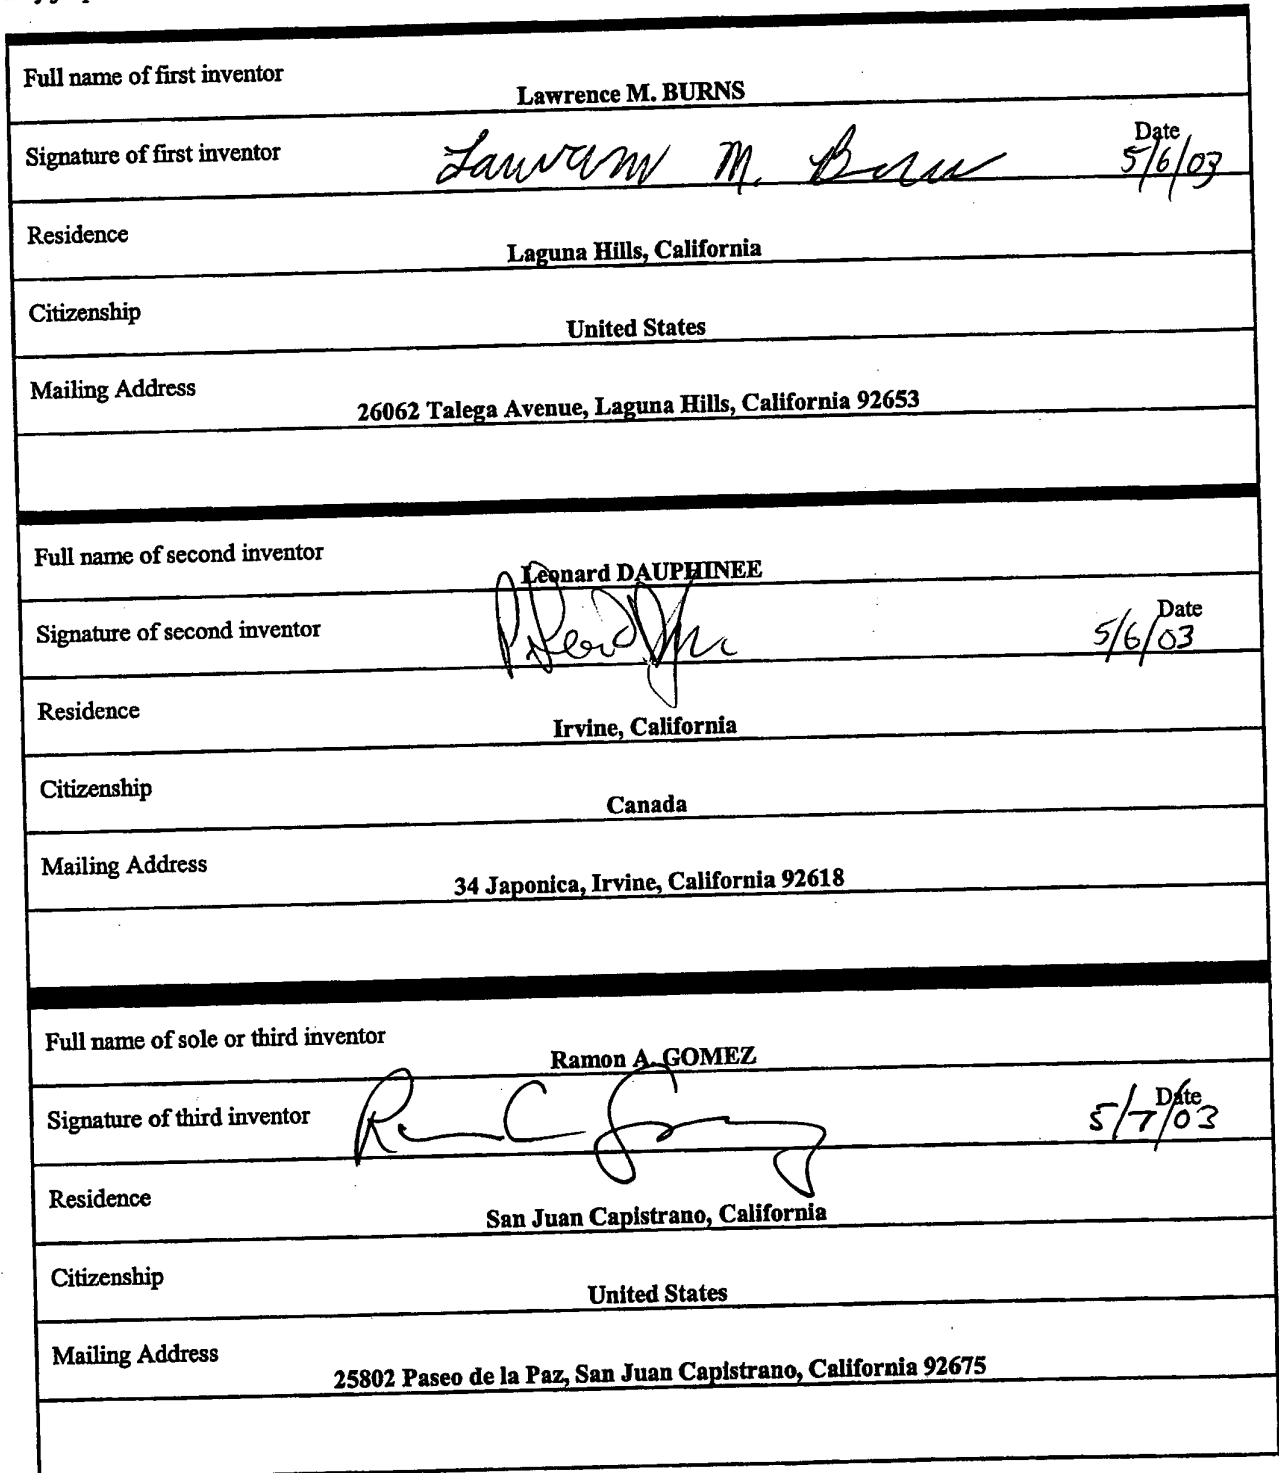 Full name of first inventor
Lawrence M. BURNS
Signature of first inventor Lawrence M. Burns Date 5/6/03
Residence
Laguna Hills, California
Citizenship
United States
Mailing Address
26062 Talega Avenue, Laguna Hills, California 92653
Full name of second inventor
Leonard DAUPHINEE
Signature of second inventor Date 5/6/03
Residence
Irvine, California
Citizenship
Canada
Mailing Address
34 Japonica, Irvine, California 92618
Full name of sole or third inventor
Ramon A. GOMEZ
Signature of third inventor Date 5/7/03
Residence
San Juan Capistrano, California
Citizenship
United States
Mailing Address
25802 Paseo de la Paz, San Juan Capistrano, California 92675